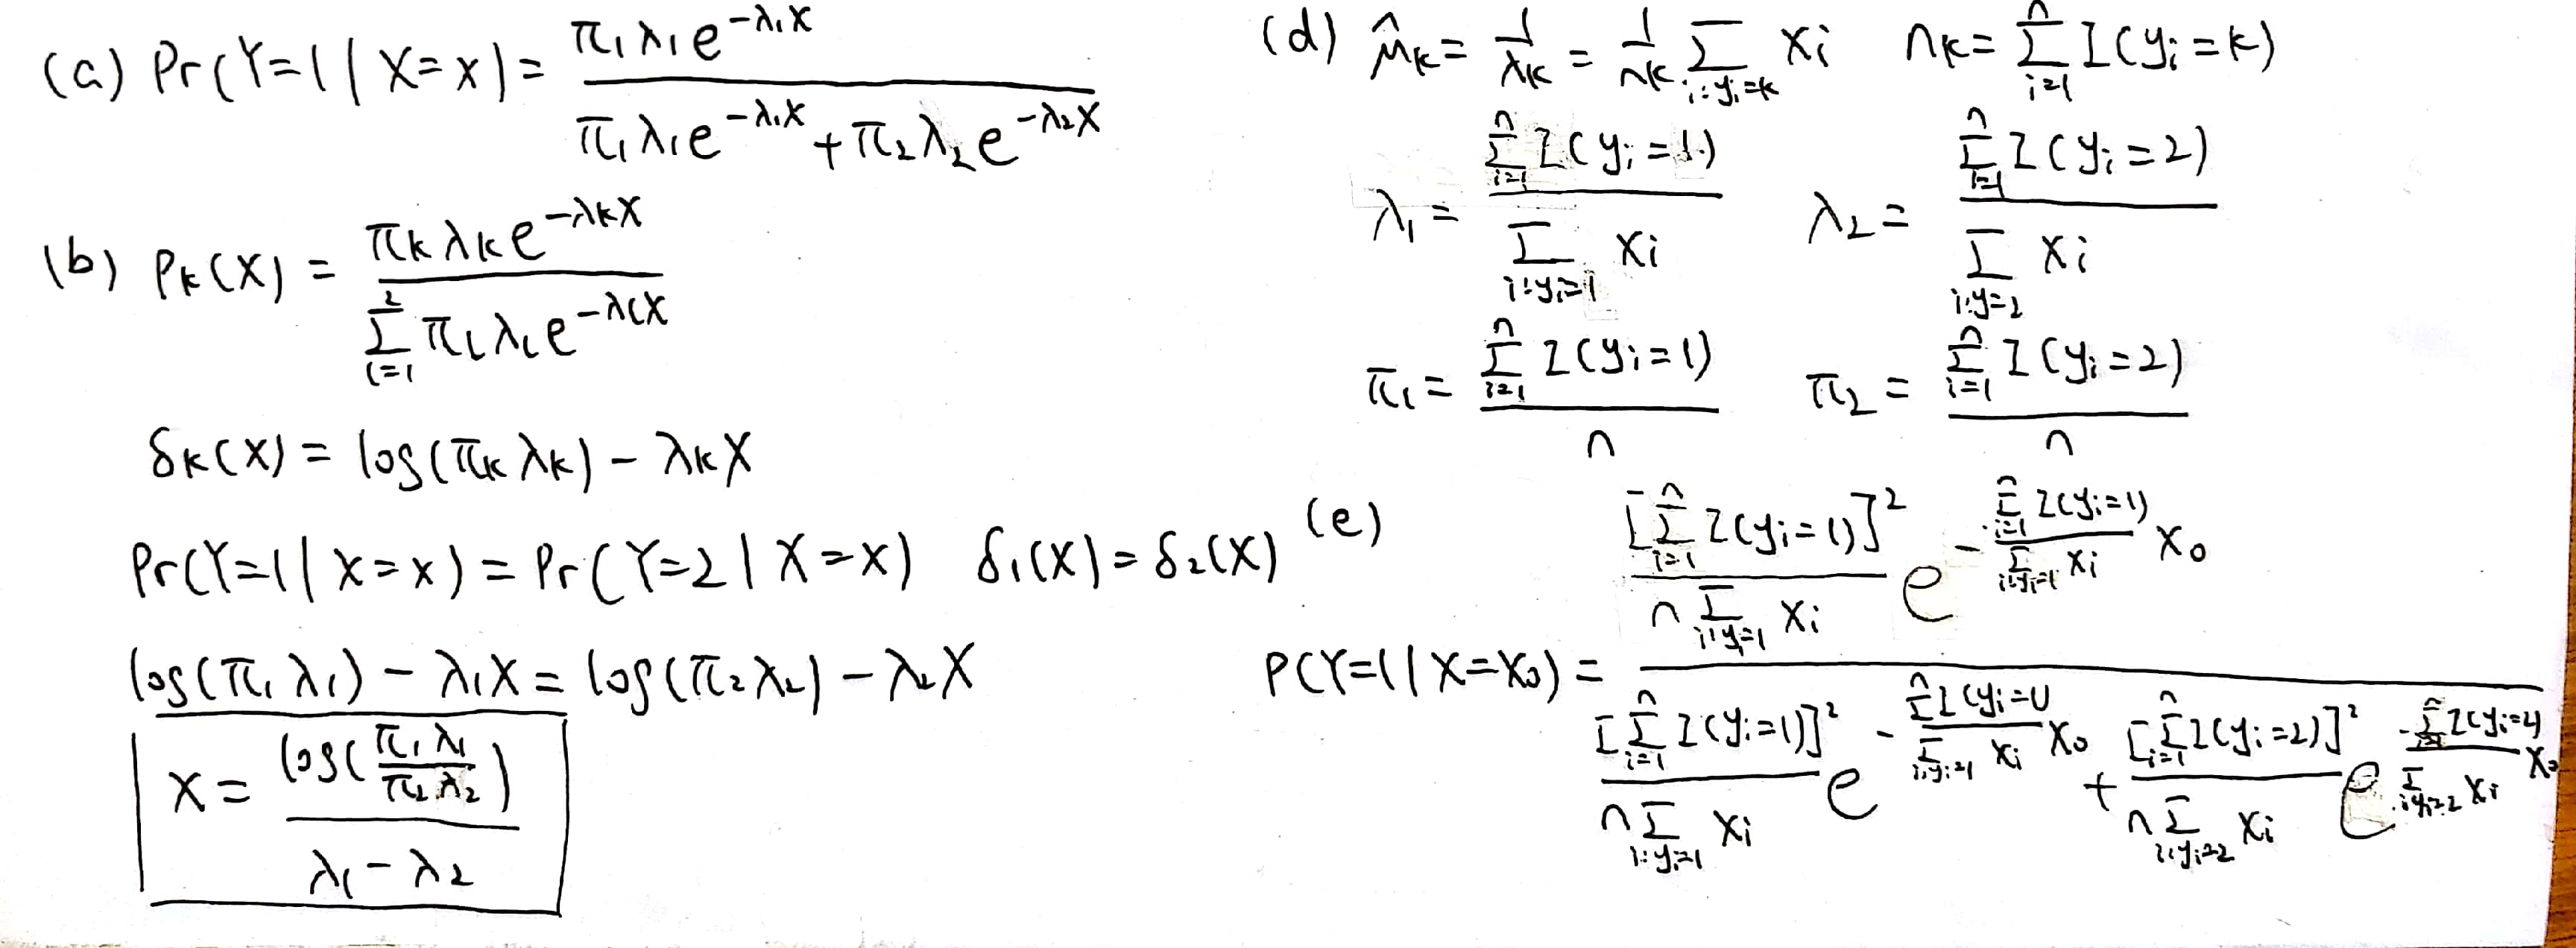 (a) Pr(Y=1 | X=x) = π₁λ₁e^{-λ₁x} / (π₁λ₁e^{-λ₁x} + π₂λ₂e^{-λ₂x})
(b) Pₖ(x) = πₖλₖe^{-λₖx} / Σ_{l=1}^{2} π_l λ_l e^{-λ_l x}
δₖ(x) = log(πₖλₖ) - λₖx
Pr(Y=1 | X=x) = Pr(Y=2 | X=x) δ₁(x) = δ₂(x)
log(π₁λ₁) - λ₁x = log(π₂λ₂) - λ₂x
x = log(π₁λ₁ / π₂λ₂) / (λ₁ - λ₂)
(d) μ̂ₖ = 1/λₖ = 1/nₖ Σ_{i:yᵢ=k} xᵢ nₖ = Σ_{i=1}^{n} I(yᵢ=k)
λ₁ = Σ_{i=1}^{n} I(yᵢ=1) / Σ_{i:yᵢ=1} xᵢ λ₂ = Σ_{i=1}^{n} I(yᵢ=2) / Σ_{i:y=2} xᵢ
π₁ = Σ_{i=1}^{n} I(yᵢ=1) / n π₂ = Σ_{i=1}^{n} I(yᵢ=2) / n
(e)
P(Y=1 | X=x₀) = ([Σ_{i=1}^{n} I(yᵢ=1)]² / n Σ_{i:yᵢ=1} xᵢ) e^{-(Σ_{i=1}^{n} I(yᵢ=1) / Σ_{i:yᵢ=1} xᵢ) x₀} / (([Σ_{i=1}^{n} I(yᵢ=1)]² / n Σ_{i:yᵢ=1} xᵢ) e^{-(Σ_{i=1}^{n} I(yᵢ=1) / Σ_{i:yᵢ=1} xᵢ) x₀} + ([Σ_{i=1}^{n} I(yᵢ=2)]² / n Σ_{i:yᵢ=2} xᵢ) e^{-(Σ_{i=1}^{n} I(yᵢ=2) / Σ_{i:yᵢ=2} xᵢ) x₀})